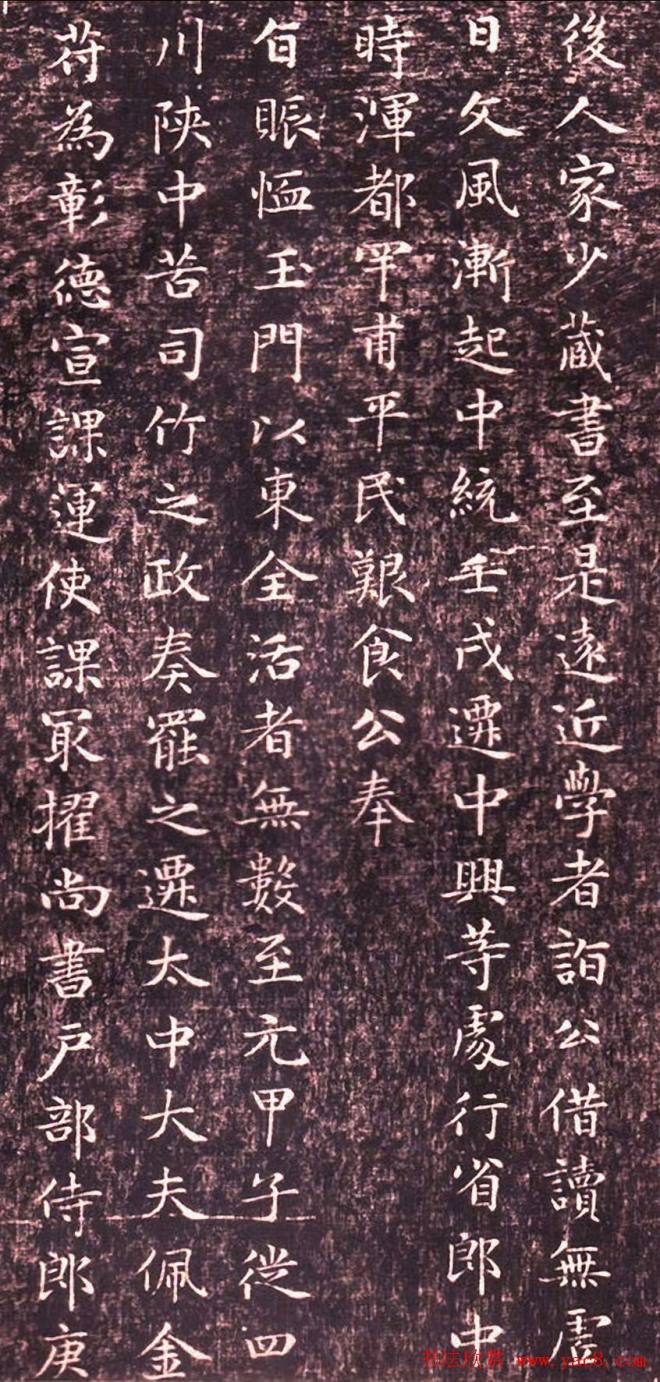 後人家少蔵書至是遠近學者詣公借讀無虗
日文風漸起中統壬戌遷中興等處行省郎中
時渾都罕甫平民艱食公奉
旨賑恤玉門以東全活者無數至元甲子從四
川陝中苦司竹之政奏罷之遷太中大夫佩金
苻為彰德宣課運使課冣擢尚書戶部侍郎庚
书法欣赏 www.yac8.com